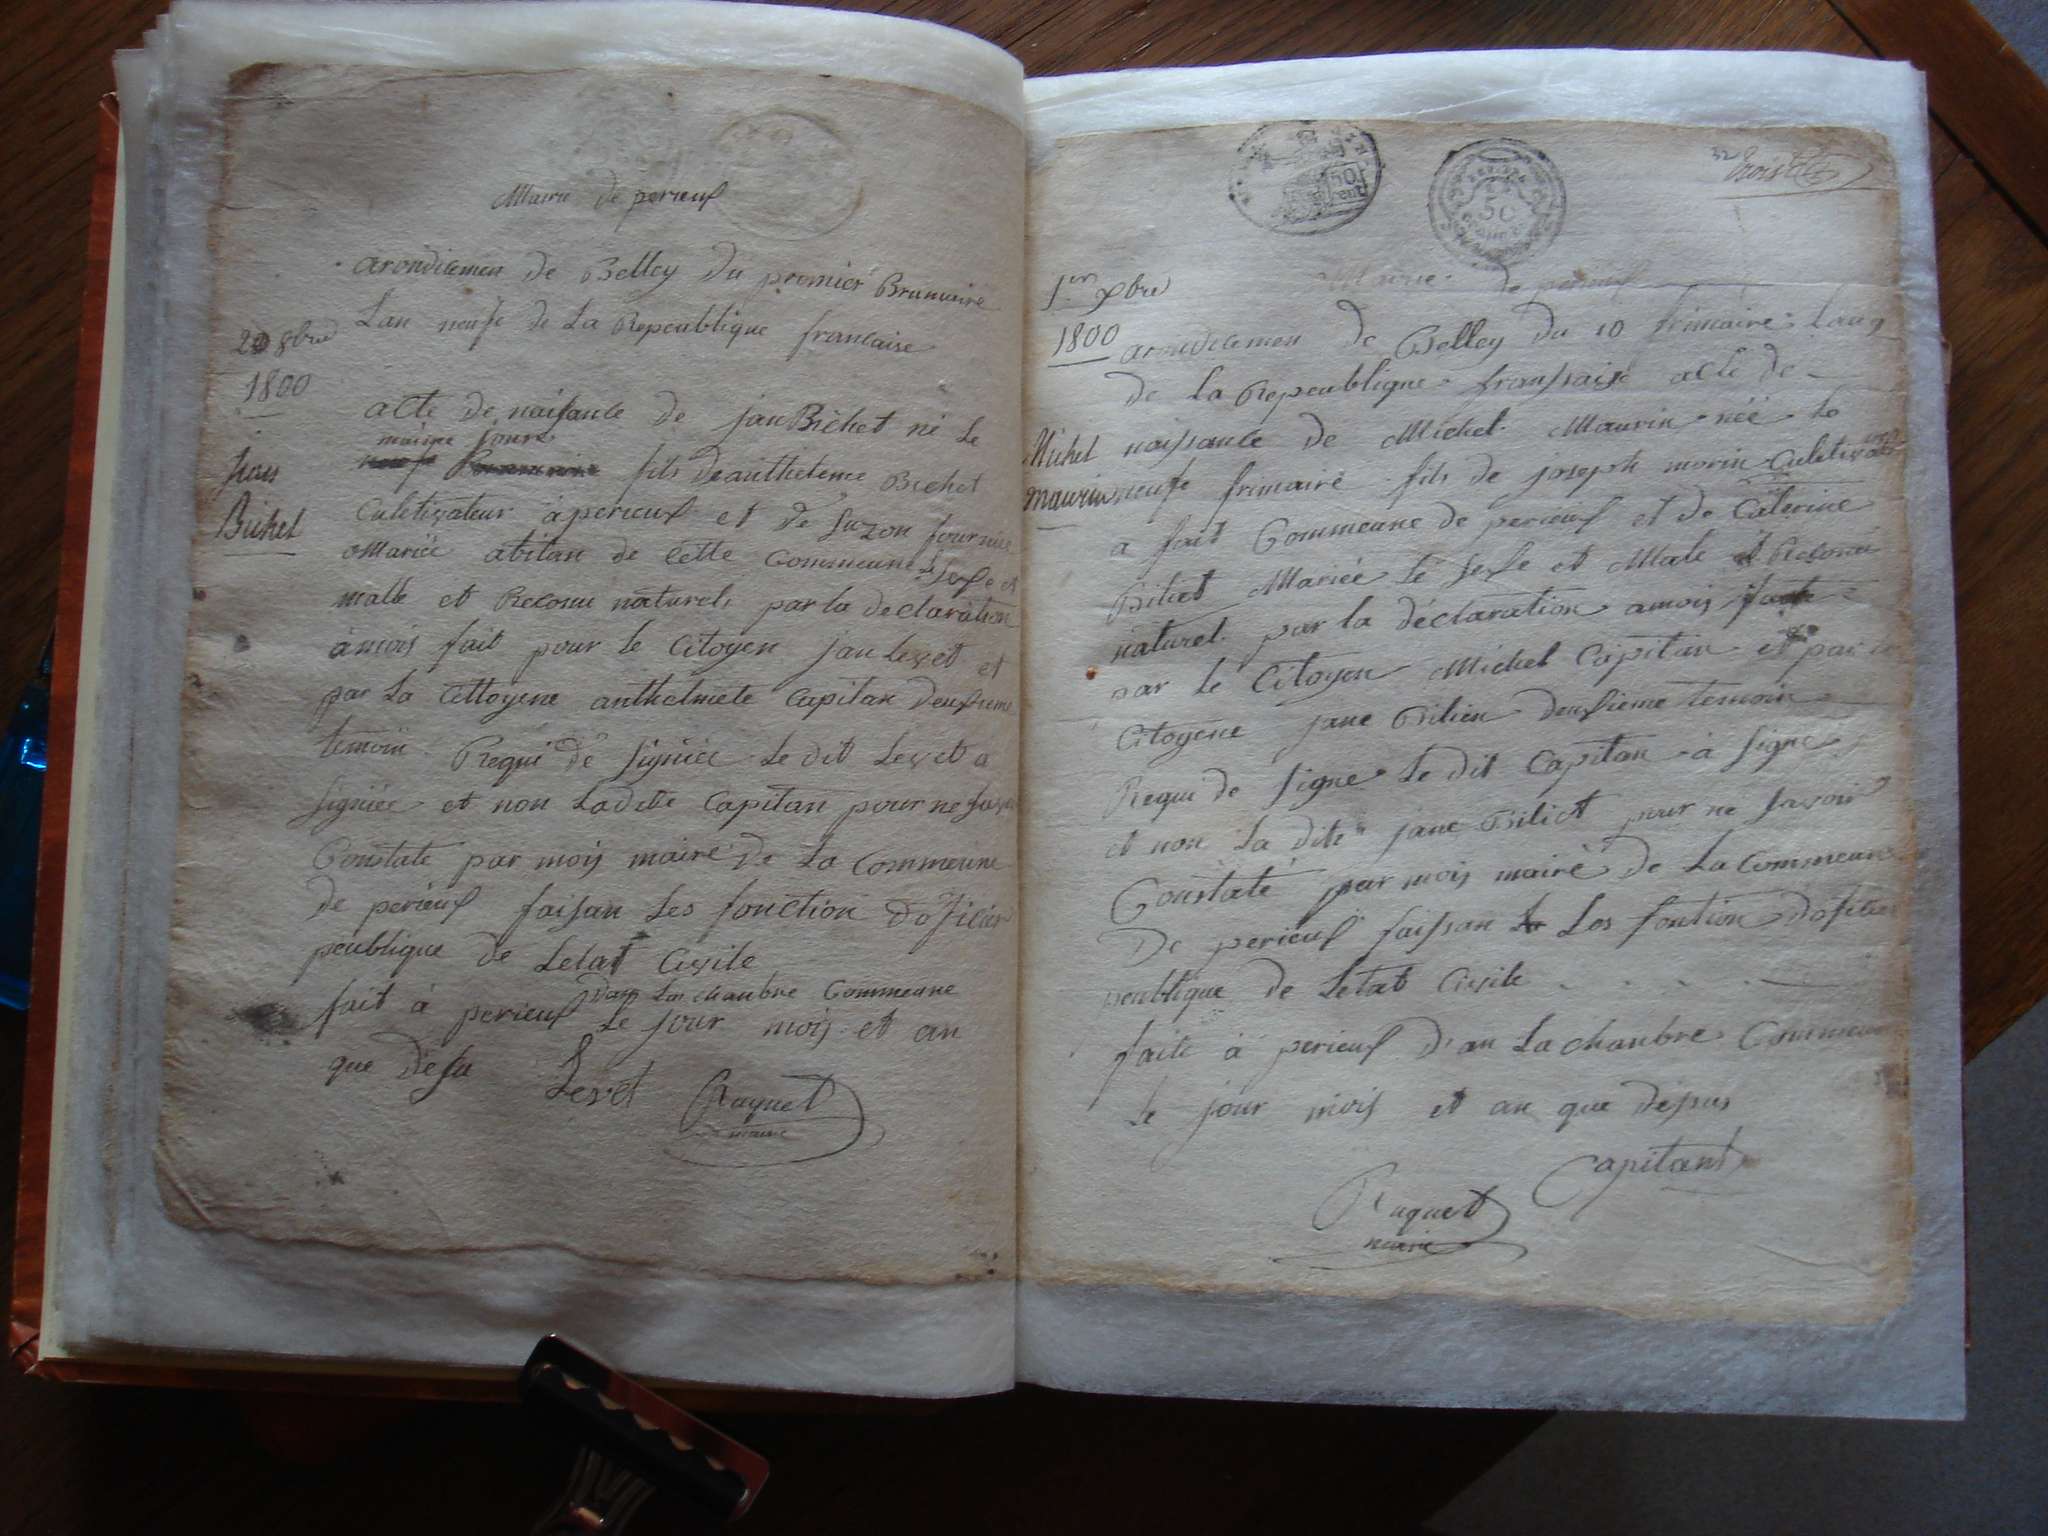 Mairie de perieuf
arondicemen de Belley du premier Brumaire
Lan neufe de La Repeublique francaise
8bre
1800
acte de naisance de jan Bichet né le
maime jours
fils de antheleme Bichet
Jean
Bichet
Culetivateur à perieuf et de Suzon fournie
Mariée abitan de cette Commeune Le sexe et
malle et Reconu naturel par la déclaration
à mois fait pour le Citoyen jan Levet et
par La Cittoyene anthelmete Capitan deuxieme
temoin Requi de signiée Le dit Levet a
signiée et non Ladite Capitan pour ne
Constaté par mois maire de La Commeune
de perieuf faisan Les fonction dofficier
peublique de Letat Civile
fait à perieuf dans La chanbre Commeune
Le jour mois et an
que desu Levet Ruquet
maire
32
trois
50
1er xbre
1800
Mairie de perieuf
arondicemen de Belley du 10 frimaire Lan 9
de la Repeublique franssaise acte de
Michel
maurin
naissance de Michel Maurin née le
neufe frimaire fils de joseph morin Culetivateur
a fait Commeune de perieuf et de Caterine
Biliet Mariée le sexe et Male et Reconu
naturel par la déclaration a mois
par Le Citoyen Michel Capitan et par
Citoyene jane Bilien deuxieme temoin
Requi de signe Le dit Capitan à signe
et non La dite jane Biliet pour ne savoir
Constaté par mois maire de La Commeune
De perieuf faissan Les fontion dofficier
peublique de Letat Civile . . . .
faite à perieuf d'an La chanbre Commeune
Le jour mois et an que depus
Capitant
Ruquet
maire